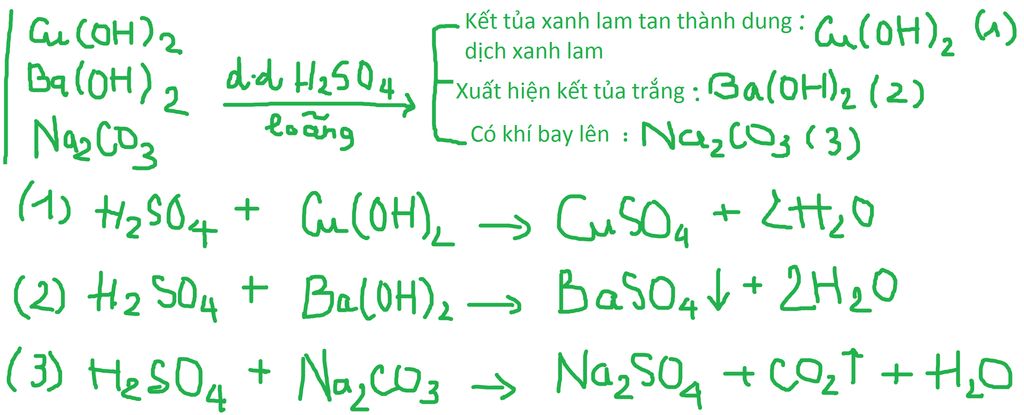 Cu(OH)₂
Ba(OH)₂
Na₂CO₃
d.d H₂SO₄
loãng
Kết tủa xanh lam tan thành dung : Cu(OH)₂ (1)
dịch xanh lam
Xuất hiện kết tủa trắng : Ba(OH)₂ (2)
Có khí bay lên : Na₂CO₃ (3)
(1) H₂SO₄ + Cu(OH)₂ → CuSO₄ + 2H₂O
(2) H₂SO₄ + Ba(OH)₂ → BaSO₄↓ + 2H₂O
(3) H₂SO₄ + Na₂CO₃ → Na₂SO₄ + CO₂↑ + H₂O